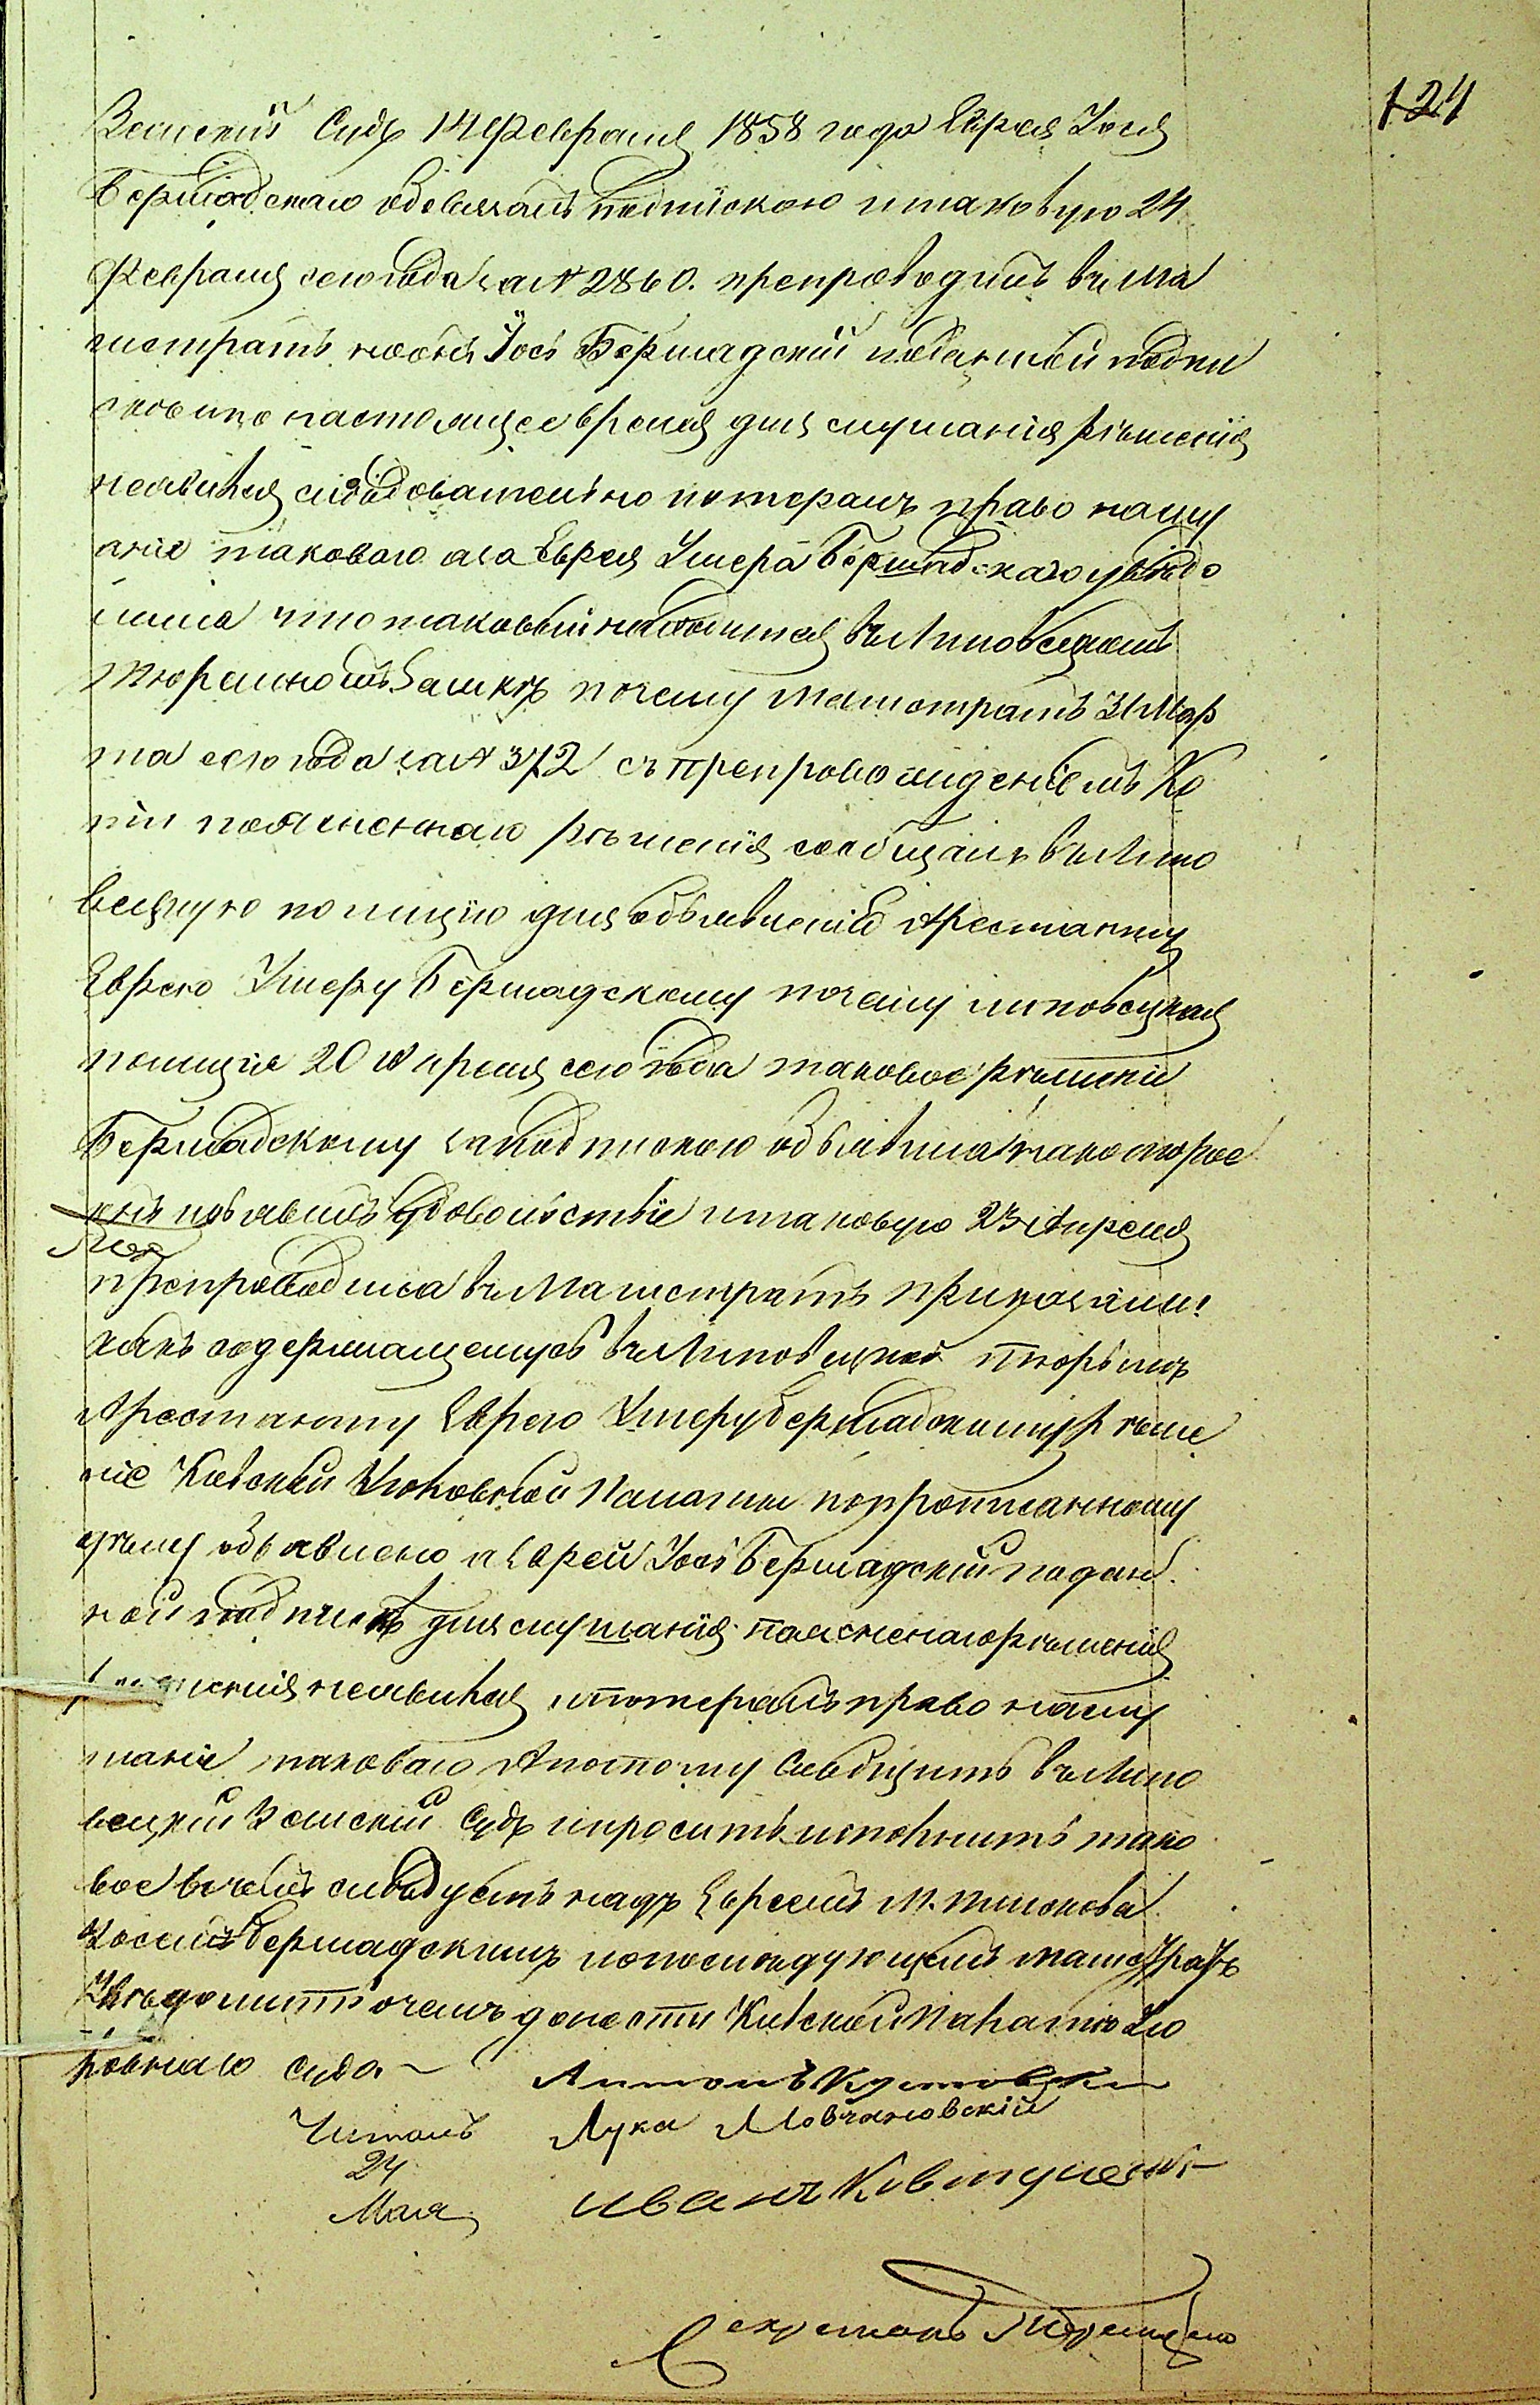 124
Земскій Судъ 14 Февраля 1858 года Еврея Іося
Бершадскаго обовязалъ подпискою и таковую 24
Февраля сего года за № 2860. препроводилъ въ Ма
гистратъ но онъ Іось Бершадскій по данной подпи
ске и по настоящее время для слушанія рѣшенія
неявился слѣдовательно потерялъ право на слу
аніе таковаго а за Еврея Умера Бершадскаго увѣдо
мила что таковый находится въ Липовецкомъ
Тюремномъ Замкѣ почему Магистратъ 31 Мар
та сего года за № 372 съ препровожденіемъ Ко
піи поясненнаго рѣшенія сообщалъ въ Липо
вецкую полицію для объявленія Арестанту
Еврею Умеру Бершадскому почему липовецкая
полиція 20 Апреля сего года таковое рѣшеніе
Бершадскому за подпискою объявила на которое
онъ изъявилъ удовольствіе и таковую 23 Апреля
препроводила въ Магистратъ приказали!
какъ содержащемуся въ Липовецкой тюрьмѣ
Арестанту Еврею Умеру Бершадскому рѣше
ніе Кіевской Уголовной Палаты по прописанному
дѣлу объявлено а Еврей Іось Бершадскій по дан
ной подпискѣ для слушанія поясненаго рѣшенія
неявился и потерялъ право на слу
шаніе таковаго А потому Сообщить въ Липо
вецкій Земскій Судъ и просить исполнить тако
вое въ чемъ слѣдуетъ надъ Евреемъ м.
Іосемъ Бершадскимъ и о послѣдующемъ магистратъ
Увѣдомить о чемъ донести Кіевской Палатѣ Уго
ловнаго Суда
Антонъ
Читалъ Лука Мовчановскій
24
Мая
иванъ
Секретарь